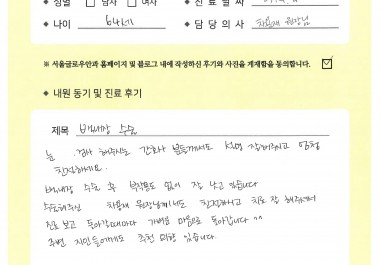 ◆ 성별 □ 남자 □ 여자 ◆ 진료날짜
◆ 나이 64세 ◆ 담당의사 원장님
※ 서울글로우안과 홈페이지 및 블로그 내에 작성하신 후기와 사진을 게재함을 동의합니다. ☑
◆ 내원 동기 및 진료 후기
제목 백내장 수술
눈 검사 해주시는 간호사 분들께서도 설명 잘해주시고 엄청
친절하세요.
백내장 수술 후 부작용도 없이 잘 낫고 있습니다
수술해주신 원장님께서도 친절하시고 치료 잘 해주셔서
진료 보고 돌아갈때마다 가벼운 마음으로 돌아갑니다 ^^
주변 지인들에게도 추천 의향 있습니다.